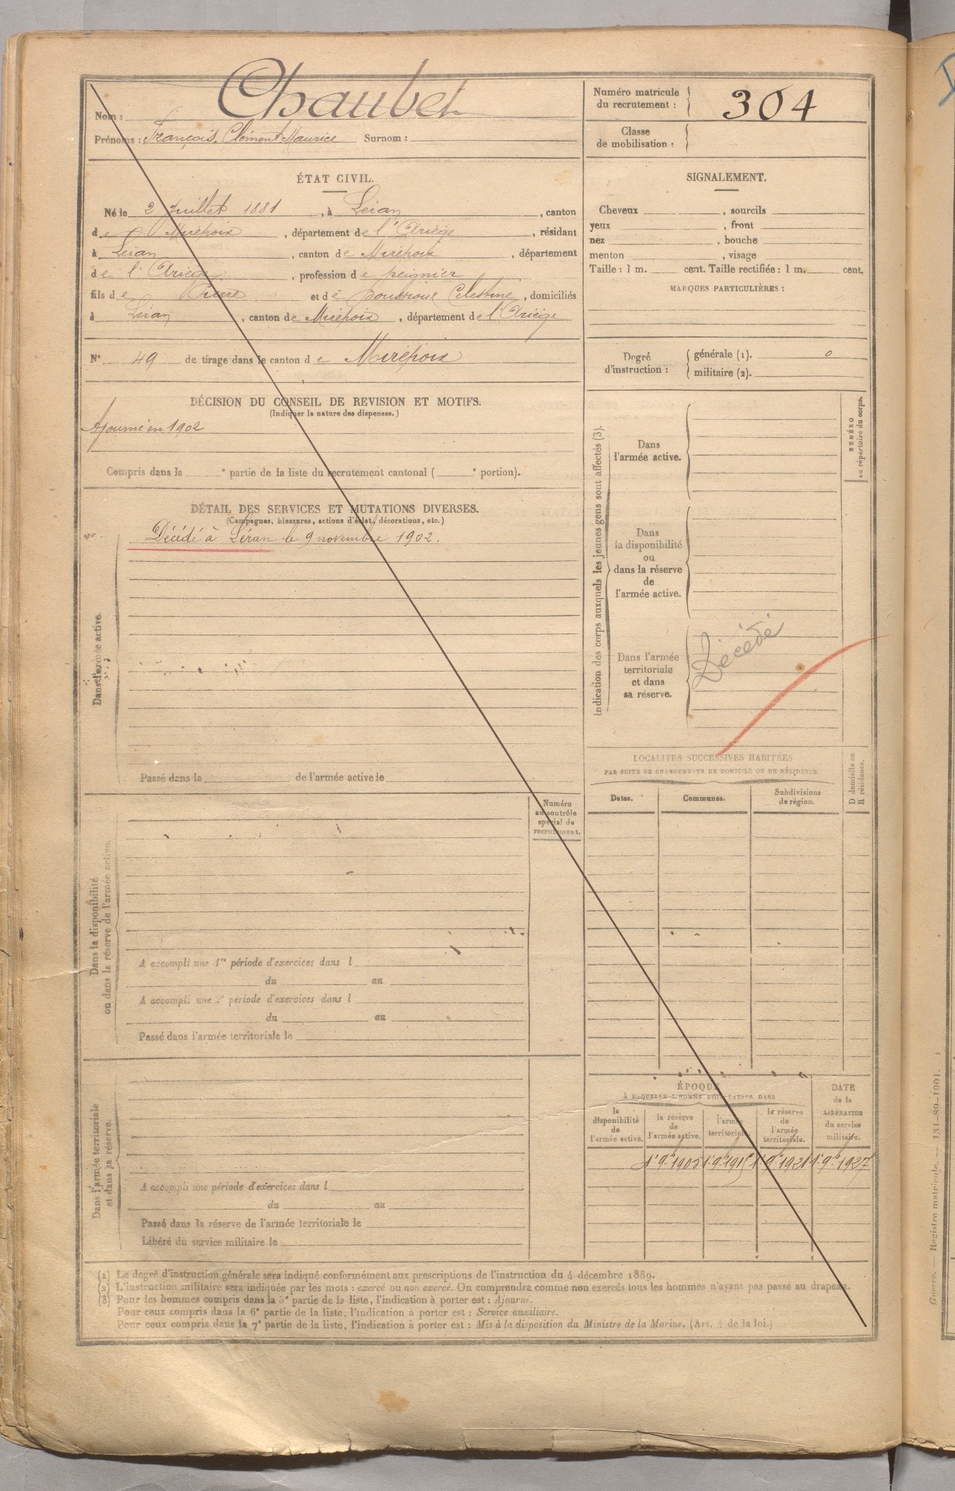 Nom : Chaubet
Prénoms : François, Clément Maurice Surnom :
Numéro matricule du recrutement : 304
Classe de mobilisation :
ÉTAT CIVIL.
Né le 2 Juillet 1881, à Léran, canton
de Mirepoix, département de l'Ariège, résidant
à Léran, canton de Mirepoix, département
de l'Ariège, profession de peignier
fils de Pierre et de Célestine, domiciliés
à Léran, canton de Mirepoix, département de l'Ariège
N° 49 de tirage dans le canton de Mirepoix
SIGNALEMENT.
Cheveux , sourcils
yeux , front
nez , bouche
menton , visage
Taille : 1 m. cent. Taille rectifiée : 1 m. cent.
MARQUES PARTICULIÈRES :
Degré d'instruction : générale (1). 0
militaire (2).
DÉCISION DU CONSEIL DE REVISION ET MOTIFS.
(Indiquer la nature des dispenses.)
Ajourné en 1902
Compris dans la e partie de la liste du recrutement cantonal ( e portion).
DÉTAIL DES SERVICES ET MUTATIONS DIVERSES.
(Campagnes, blessures, actions d'éclat, décorations, etc.)
Décédé à Léran le 9 novembre 1902.
Dans l'armée active.
Passé dans la de l'armée active le
Indication des corps auxquels les jeunes gens sont affectés (3).
NUMÉRO
au répertoire du corps.
Dans
l'armée active.
Dans
la disponibilité
ou
dans la réserve
de
l'armée active.
Dans l'armée
territoriale
et dans
sa réserve.
Décédé
LOCALITÉS SUCCESSIVES HABITÉES
PAR SUITE DE CHANGEMENTS DE DOMICILE OU DE RÉSIDENCE.
Dates.
Communes.
Subdivisions
de région.
D domicile ou
R résidence.
Numéro
au contrôle
spécial du
recrutement.
Dans la disponibilité
ou dans la réserve de l'armée active.
A accompli une 1re période d'exercices dans l
du au
A accompli une 2e période d'exercices dans l
du au
Passé dans l'armée territoriale le
Dans l'armée territoriale
et dans sa réserve.
A accompli une période d'exercices dans l
du au
Passé dans la réserve de l'armée territoriale le
Libéré du service militaire le
ÉPOQUE
À LAQUELLE L'HOMME DOIT PASSER DANS
la
disponibilité
de
l'armée active.
la réserve
de
l'armée active.
l'armée
territoriale.
la réserve
de
l'armée
territoriale.
DATE
de la
LIBÉRATION
du service
militaire.
1er 9bre 1905 1er 9bre 1915 1er 9bre 1921 1er 9bre 1927
(1) Le degré d'instruction générale sera indiqué conformément aux prescriptions de l'instruction du 4 décembre 1889.
(2) L'instruction militaire sera indiquée par les mots : exercé ou non exercé. On comprendra comme non exercés tous les hommes n'ayant pas passé au drapeau.
(3) Pour les hommes compris dans la 5e partie de la liste, l'indication à porter est : Ajourné.
Pour ceux compris dans la 6e partie de la liste, l'indication à porter est : Service auxiliaire.
Pour ceux compris dans la 7e partie de la liste, l'indication à porter est : Mis à la disposition du Ministre de la Marine. (Art. 4 de la loi.)